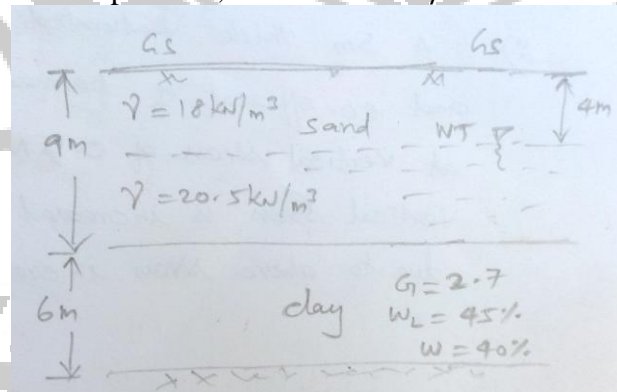 GS GS
γ = 18 kN/m³
sand
WT
4m
9m
γ = 20.5 kN/m³
6m
clay
G = 2.7
WL = 45%
W = 40%